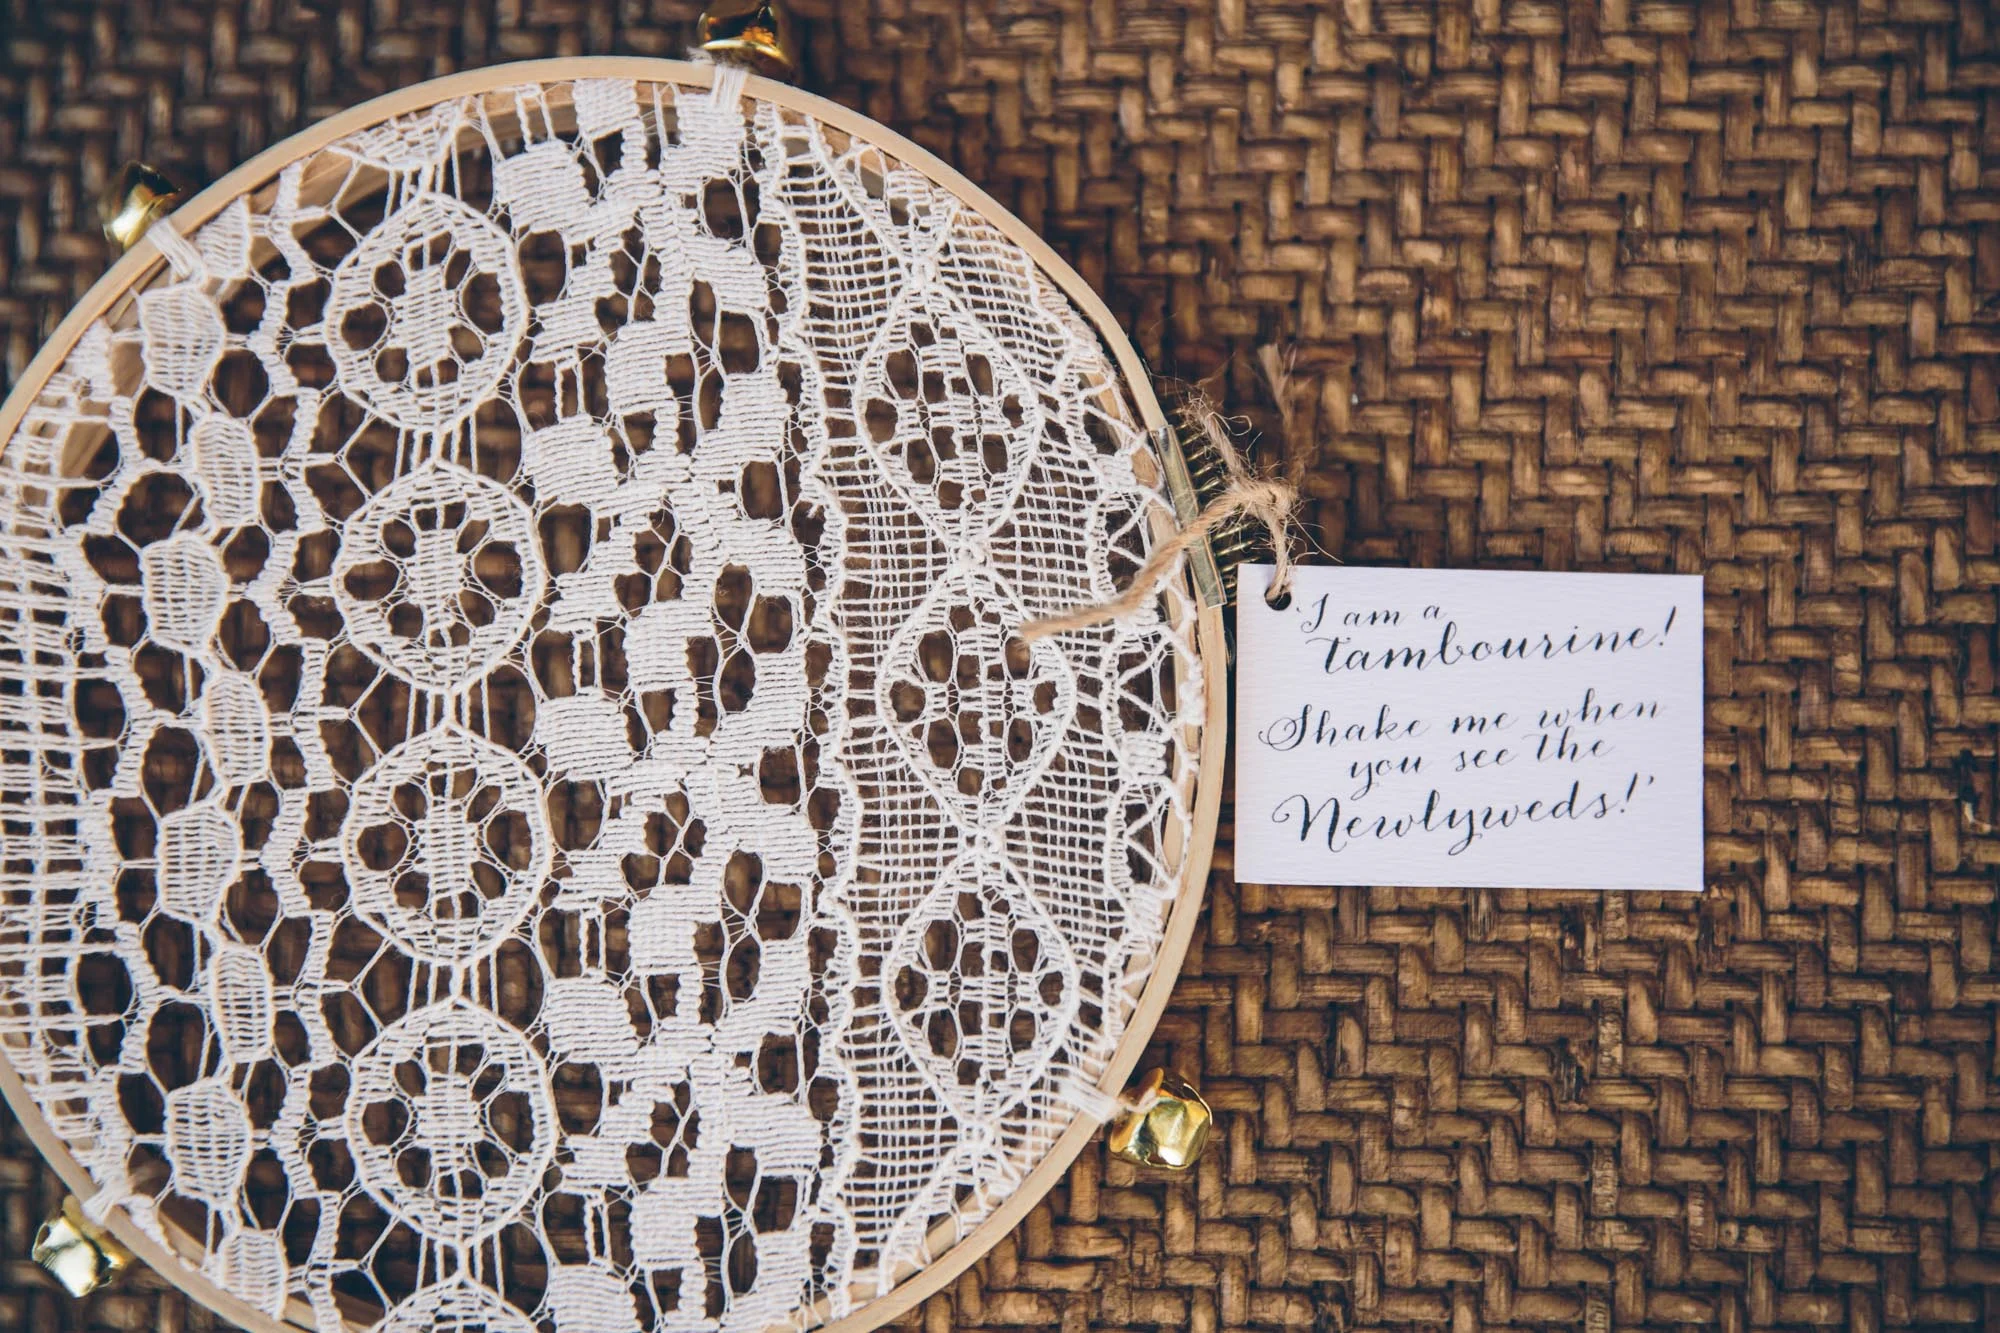 'I am a
tambourine!
Shake me when
you see the
Newlyweds!'